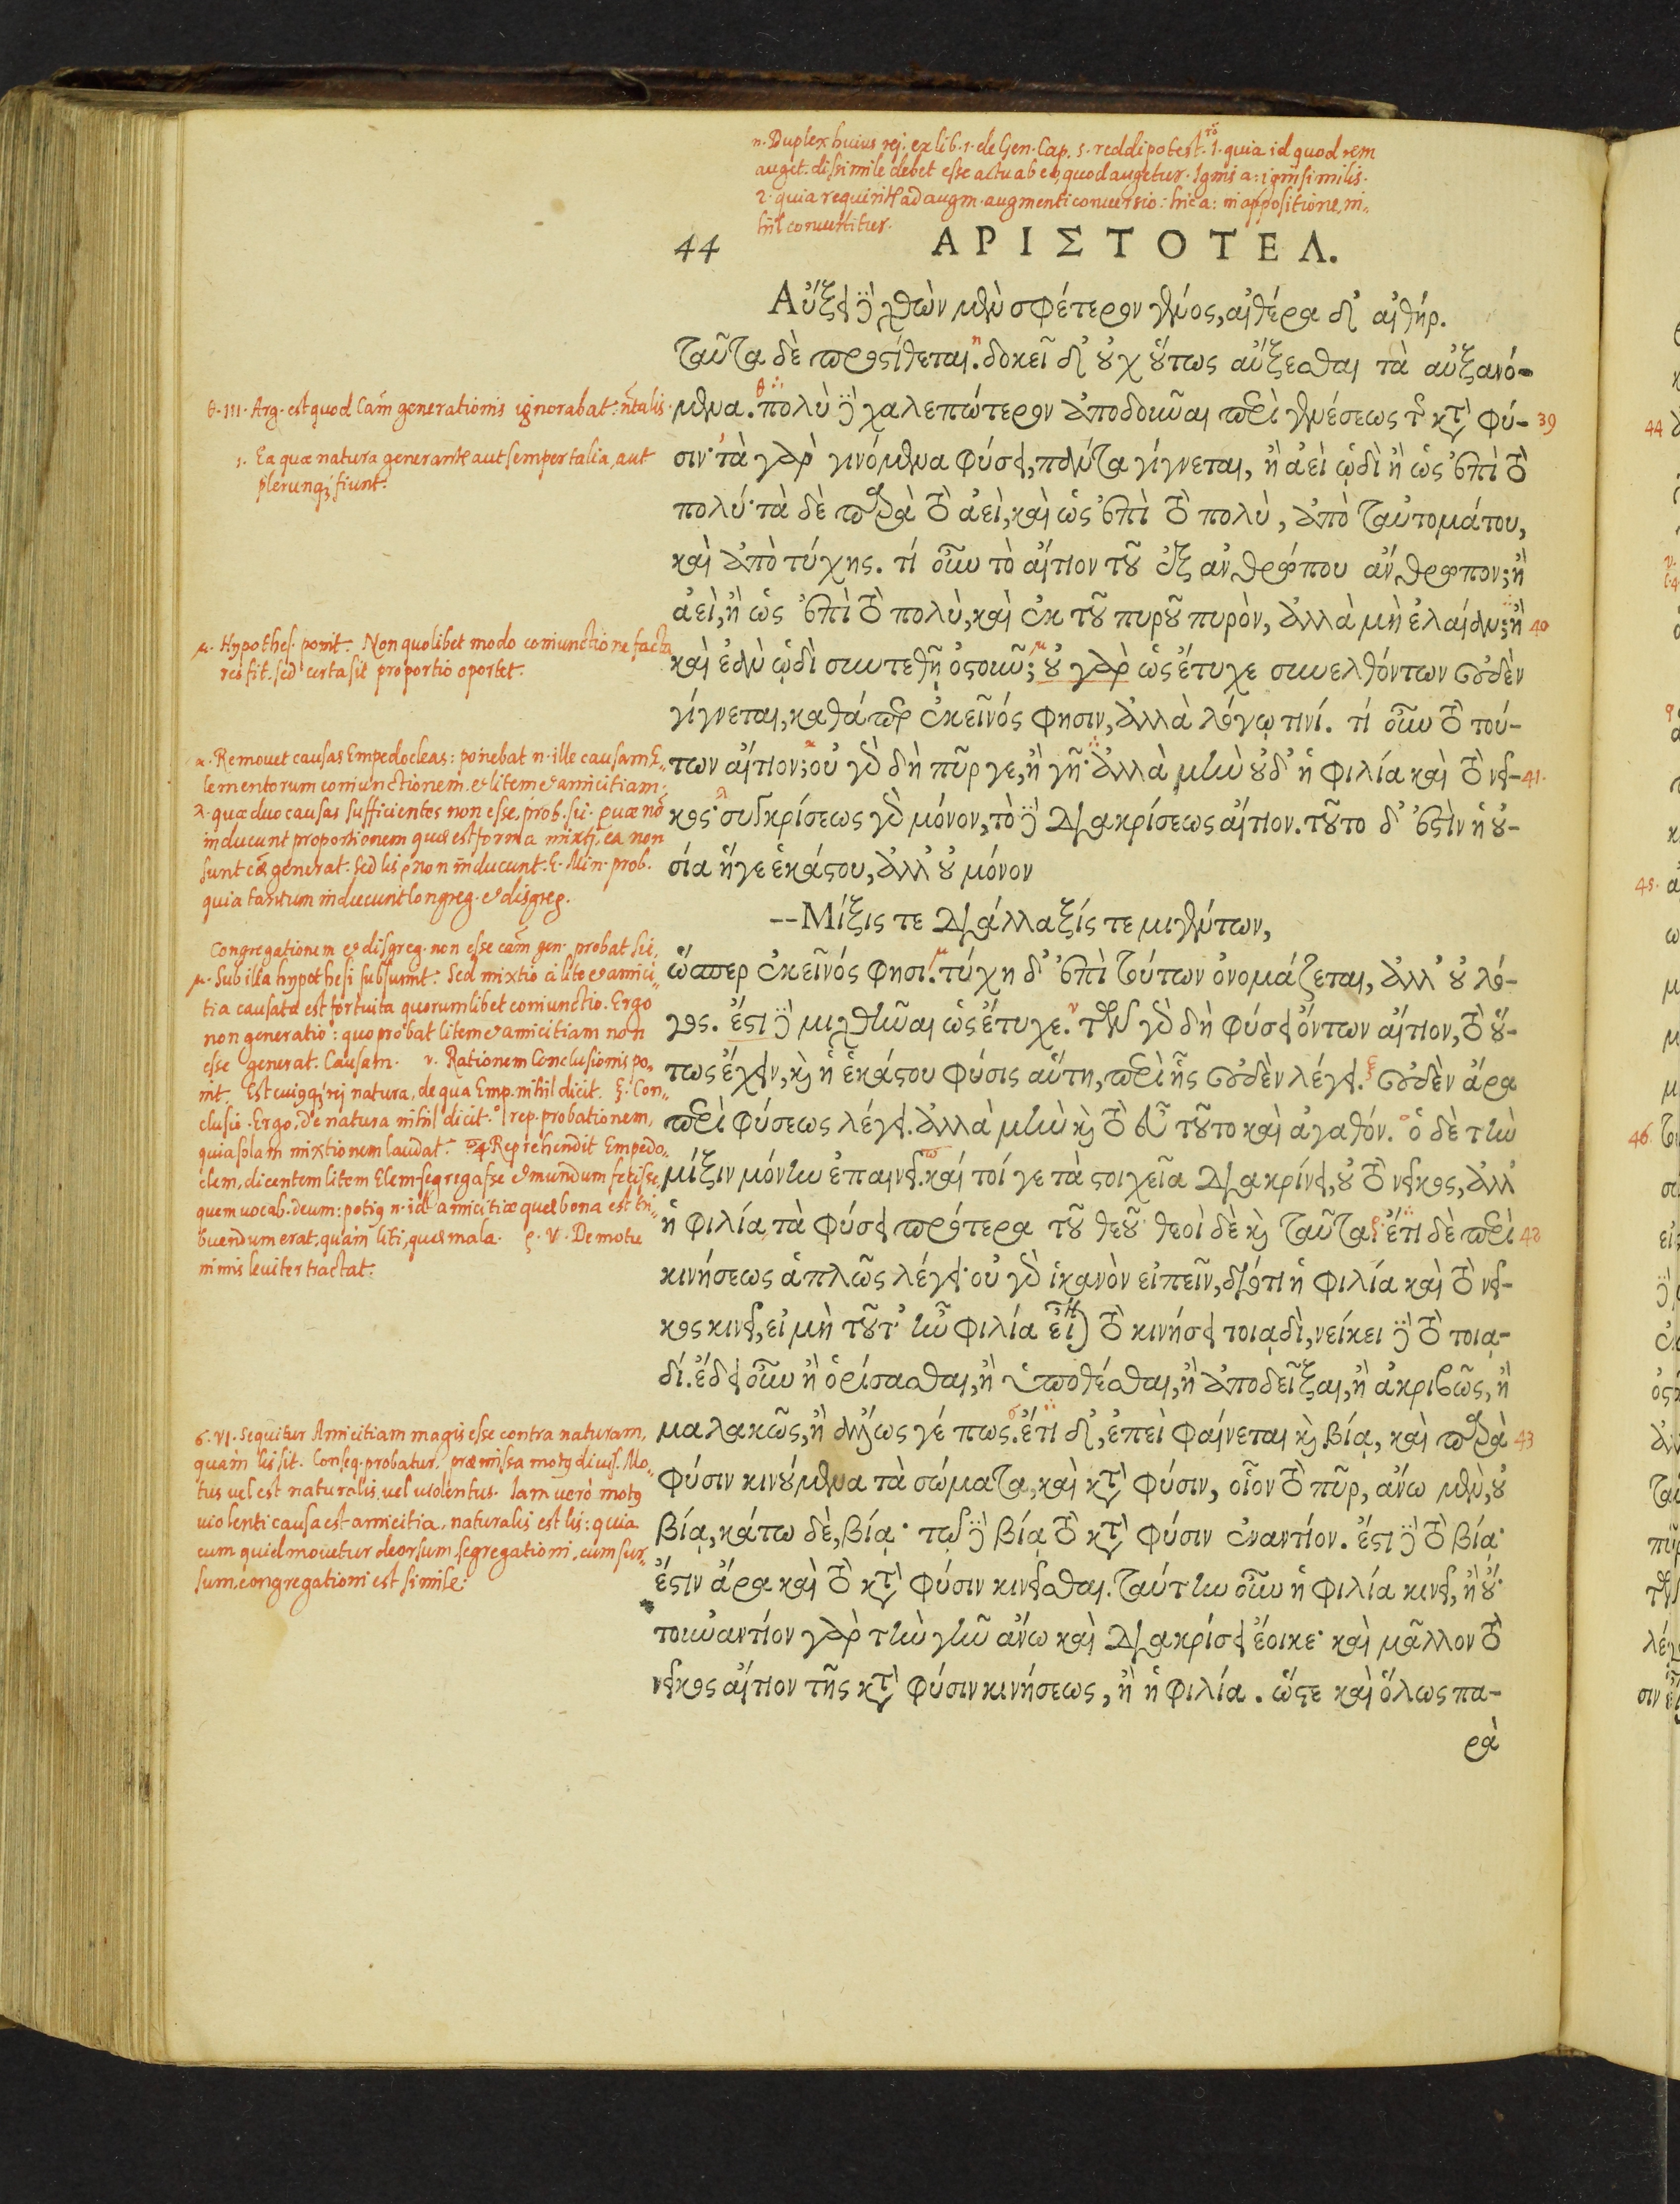 η. Duplex huius rej. ex lib. 1. de Gen. Cap. 5. reddi potest. 1. quia id quod rem
auget. dissimile debet esse actu ab eo, quod augetur. Ignis a: igni similis.
2. quia requirit' ad augm. augmenti conuersio: hic a: in appositione, ni-
hil conuertitur.
44 ΑΡΙΣΤΟΤΕΛ.
Αὔξει ἢ χθὼν μὲν σφέτερον γένος, αἰθέρα δ' αἰθήρ.
ταῦτα δὲ προστίθεται. δοκεῖ δ' οὐχ οὕτως αὔξεσθαι τὰ αὐξανό-
μενα. πολὺ δὲ χαλεπώτερον ἀποδοῦναι περὶ γενέσεως τῆς κατὰ φύ- 39
σιν· τὰ γὰρ γινόμενα φύσει, πάντα γίγνεται, ἢ ἀεὶ ὡδὶ ἢ ὡς ἐπὶ τὸ
πολύ· τὰ δὲ παρὰ τὸ ἀεὶ, καὶ ὡς ἐπὶ τὸ πολὺ, ἀπὸ ταὐτομάτου,
καὶ ἀπὸ τύχης. τί οὖν τὸ αἴτιον τοῦ ἐξ ἀνθρώπου ἄνθρωπον; ἢ
ἀεὶ, ἢ ὡς ἐπὶ τὸ πολὺ, καὶ ἐκ τοῦ πυροῦ πυρὸν, ἀλλὰ μὴ ἐλαίαν; ἢ 40
καὶ ἐὰν ὡδὶ συντεθῇ ὀστοῦν; οὐ γὰρ ὡς ἔτυχε συνελθόντων οὐδὲν
γίγνεται, καθάπερ ἐκεῖνός φησιν, ἀλλὰ λόγῳ τινί. τί οὖν τὸ τού-
των αἴτιον; οὐ γὰρ δὴ πῦρ γε, ἢ γῆ· ἀλλὰ μὴν οὐδ' ἡ φιλία καὶ τὸ νεῖ- 41.
κος· συγκρίσεως γὰρ μόνον, τὸ δὲ διακρίσεως αἴτιον. τοῦτο δ' ἐστὶν ἡ οὐ-
σία ἥγε ἑκάστου, ἀλλ' οὐ μόνον
--Μίξις τε διάλλαξίς τε μιγέντων,
ὥσπερ ἐκεῖνός φησι. τύχη δ' ἐπὶ τούτων ὀνομάζεται, ἀλλ' οὐ λό-
γος. ἔστι δὲ μιχθῆναι ὡς ἔτυχε. τῶν γὰρ δὴ φύσει ὄντων αἴτιον, τὸ οὕ-
τως ἔχειν, καὶ ἡ ἑκάστου φύσις αὕτη, περὶ ἧς οὐδὲν λέγει. οὐδὲν ἄρα
περὶ φύσεως λέγει. ἀλλὰ μὴν καὶ τὸ εὖ τοῦτο καὶ ἀγαθόν. ὁ δὲ τὴν
μίξιν μόνην ἐπαινεῖ. καί τοί γε τὰ στοιχεῖα διακρίνει, οὐ τὸ νεῖκος, ἀλλ'
ἡ φιλία, τὰ φύσει πρότερα τοῦ θεοῦ· θεοὶ δὲ καὶ ταῦτα. ἔτι δὲ περὶ 42
κινήσεως ἁπλῶς λέγει· οὐ γὰρ ἱκανὸν εἰπεῖν, διότι ἡ φιλία καὶ τὸ νεῖ-
κος κινεῖ, εἰ μὴ τοῦτ' ἦν φιλία εἶναι τὸ κινήσει τοιᾳδὶ, νείκει δὲ τὸ τοια-
δί. ἔδει οὖν ἢ ὁρίσασθαι, ἢ ὑποθέσθαι, ἢ ἀποδεῖξαι, ἢ ἀκριβῶς, ἢ
μαλακῶς, ἢ ἄλλως γέ πως. ἔτι δ', ἐπεὶ φαίνεται καὶ βίᾳ, καὶ παρὰ 43
φύσιν κινούμενα τὰ σώματα, καὶ κατὰ φύσιν, οἷον τὸ πῦρ, ἄνω μὲν, οὐ
βίᾳ, κάτω δὲ, βίᾳ· τῷ δὲ βίᾳ τὸ κατὰ φύσιν ἐναντίον. ἔστι δὲ τὸ βίᾳ·
ἔστιν ἄρα καὶ τὸ κατὰ φύσιν κινεῖσθαι. ταύτην οὖν ἡ φιλία κινεῖ, ἢ οὔ·
τοὐναντίον γὰρ τὴν γῆν ἄνω καὶ διακρίσει ἔοικε· καὶ μᾶλλον τὸ
νεῖκος αἴτιον τῆς κατὰ φύσιν κινήσεως, ἢ ἡ φιλία. ὥστε καὶ ὅλως πα-
ρὰ
θ. III. Arg. est quod Cām generationis ignorabat: ntalis.
1. Ea quæ natura generant' aut semper talia, aut
plerunq; fiunt.
μ. Hypothes. ponit. Non quolibet modo coniunctione facta
res fit. sed certa sit proportio oportet.
κ. Remouet causas Empedocleas: ponebat n. ille causam E-
lementorum coniunctionem. & litem & amicitiam.
λ. quæ duo causas sufficientes non esse, prob. sic. quæ nō
inducunt proportionem quæ est forma mixti, ea non
sunt cā generat. Sed lis non inducunt. E. Min. prob.
quia tantum inducunt Congreg. & disgreg.
Congregationem & disgreg. non esse cām gen. probat sic,
μ. Sub illa hypothesi subsumit: Sed mixtio a lite & amici-
tia causata est fortuita quorumlibet coniunctio. Ergo
non generatio: quo probat litem & amicitiam non
esse generat. Causam. ν. Rationem Conclusionis po-
nit. Est cuiqq; rej natura, de qua Emp. nihil dicit. ξ. Con-
clusio. Ergo, De natura nihil dicit. ο rep. probationem,
quia solam mixtionem laudat. Reprehendit Empedo-
clem, dicentem litem Elem. segregasse & mundum fecisse,
quem vocab. deum: potiq n. id amicitiæ quæ bona est tri-
buendum erat, quàm liti, quæ mala. ρ. V. De motu
nimis leuiter tractat.
ϭ. VI. Sequitur Amicitiam magis esse contra naturam,
quàm lis sit. Conseq. probatur, præmissa motq diuis. Mo-
tus vel est naturalis, vel violentus. Iam verò motq
violenti causa est amicitia, naturalis est lis: quia
cum quid mouetur deorsum, segregationi, cum sur-
sum, congregationi est simile: